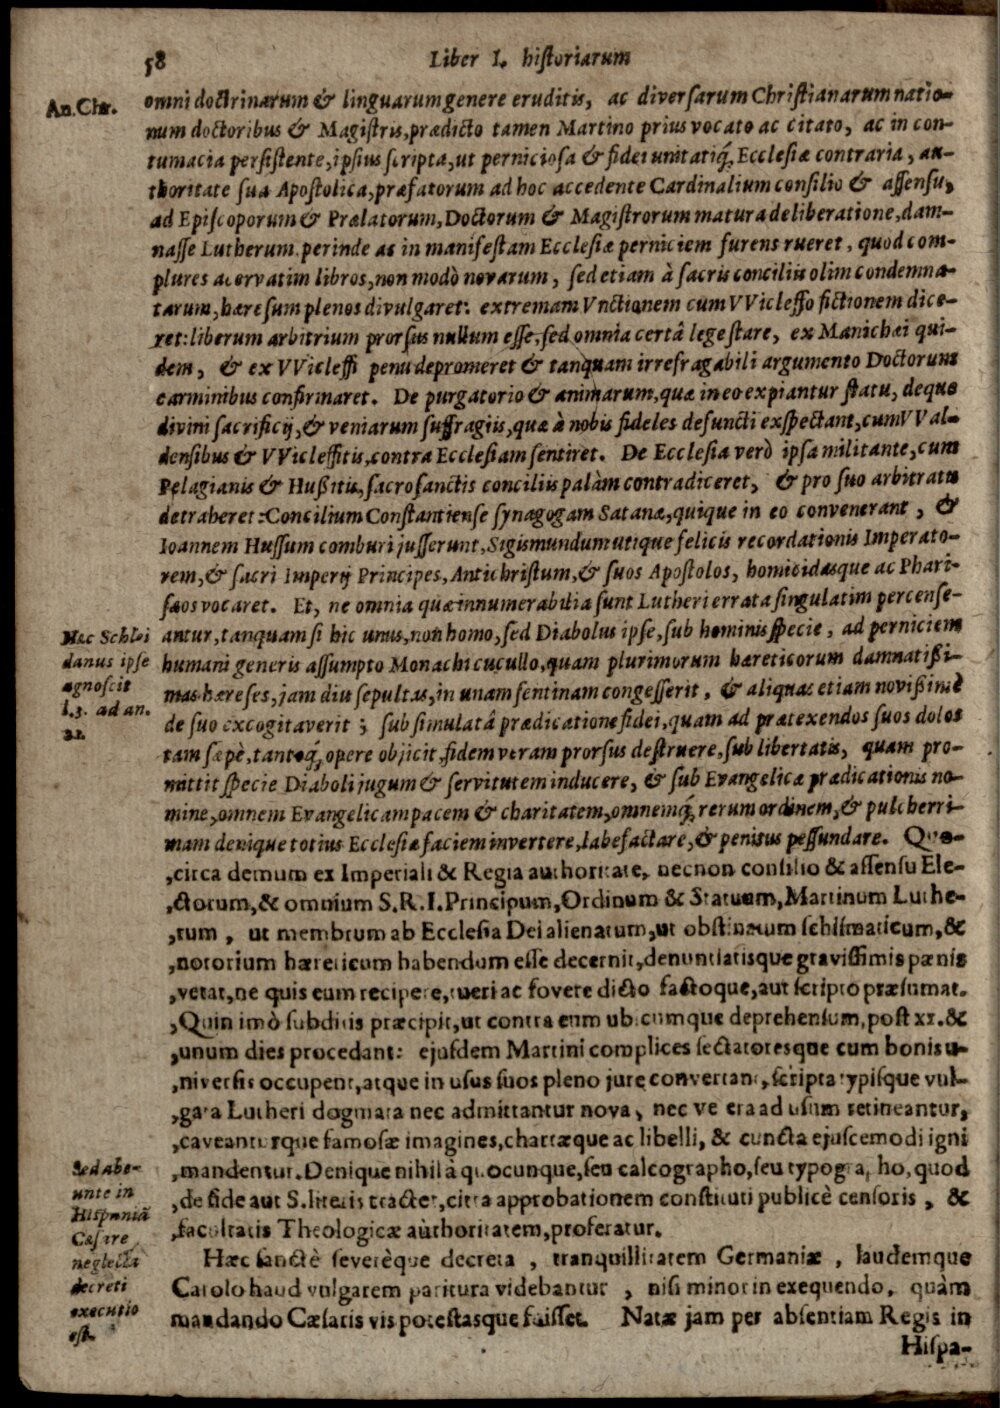 58 Liber I. historiarum
An. Chr.
omni doctrinarum & linguarum genere eruditis, ac diversarum Christianarum natio-
num doctoribus & Magistris, prædicto tamen Martino prius vocato ac citato, ac in con-
tumacia persistente, ipsius scripta, ut perniciosa & fidei unitatiq́; Ecclesiæ contraria, au-
thoritate sua Apostolica, præfatorum ad hoc accedente Cardinalium consilio & assensu,
ad Episcoporum & Prælatorum, Doctorum & Magistrorum matura deliberatione, dam-
nasse Lutherum. perinde ac in manifestam Ecclesiæ perniciem furens rueret, quod com-
plures acervatim libros, non modò novarum, sed etiam à sacris conciliis olim condemna-
tarum, hæresum plenos divulgaret: extremam Vnctionem cum VVicleffo fictionem dice-
ret: liberum arbitrium prorsus nullum esse, sed omnia certâ lege stare, ex Manichæi qui-
dem, & ex VVicleffi penu depromeret & tanquam irrefragabili argumento Doctorum
carminibus confirmaret. De purgatorio & animarum, quæ in eo expiantur statu, deque
divini sacrificij, & veniarum suffragiis, quæ à nobis fideles defuncti exspectant, cum VVal-
densibus & VVicleffitis, contra Ecclesiam sentiret. De Ecclesia verò ipsa militante, cum
Pelagianis & Hußitis, sacrosanctis conciliis palàm contradiceret, & pro suo arbitratu
detraheret: Concilium Constantiense synagogam Satanæ, quique in eo convenerant, &
Ioannem Hussum comburi jusserunt, Sigismundum utique felicis recordationis Imperato-
rem, & sacri Imperij Principes, Antichristum, & suos Apostolos, homicidasque ac Phari-
sæos vocaret. Et, ne omnia quæ innumerabilia sunt Lutheri errata singulatim percense-
Hæc Schlei
danus ipse
agnoscit
l.3. ad an.
21.
antur, tanquam si hic unus, non homo, sed Diabolus ipse, sub hominis specie, ad perniciem
humani generis assumpto Monachi cucullo, quam plurimorum hæreticorum damnatißi-
mas hæreses, jam diu sepultas, in unam sentinam congesserit, & aliquas etiam novißimè
de suo excogitaverit; sub simulatâ prædicatione fidei, quam ad prætexendos suos dolos
tam sæpè, tantoq́; opere objicit, fidem veram prorsus destruere, sub libertatis, quam pro-
mittit specie Diaboli jugum & servitutem inducere, & sub Evangelicæ prædicationis no-
mine, omnem Evangelicam pacem & charitatem, omnemq́; rerum ordinem, & pulcherri-
mam denique totius Ecclesiæ faciem invertere, labefactare, & penitus pessundare. Quo-
,circa demum ex Imperiali & Regia authoritate, necnon consilio & assensu Ele-
,ctorum, & omnium S.R.I. Principum, Ordinum & Statuum, Martinum Luthe-
,rum, ut membrum ab Ecclesia Dei alienatum, ut obstinatum schismaticum, &
,notorium hæreticum habendum esse decernit, denuntiatisque gravissimis pænis
,vetat, ne quis eum recipere, tueri ac fovere dicto factoque, aut scripto præsumat.
,Quin imò subditis præcipit, ut contra eum ubicumque deprehensum, post xx. &
,unum dies procedant: ejusdem Martini complices sectatoresque cum bonis u-
,niversis occupent, atque in usus suos pleno jure convertant, scripta typisque vul-
,gata Lutheri dogmata nec admittantur nova, nec vetera ad usum retineantur,
,caveanturque famosæ imagines, chartæque ac libelli, & cuncta ejuscemodi igni
,mandentur. Denique nihil à quocunque, seu calcographo, seu typographo, quod
,de fide aut S. literis tractet, citra approbationem constituti publicè censoris, &
,facultatis Theologicæ authoritatem, proferatur.
Sed abe-
unte in
Hispaniã
Cæsare
neglecta
decreti
executio
est.
Hæc sanctè severèque decreta, tranquillitatem Germaniæ, laudemque
Carolo haud vulgarem paritura videbantur, nisi minor in exequendo, quàm
mandando Cæsaris vis potestasque fuisset. Natæ jam per absentiam Regis in
Hispa-